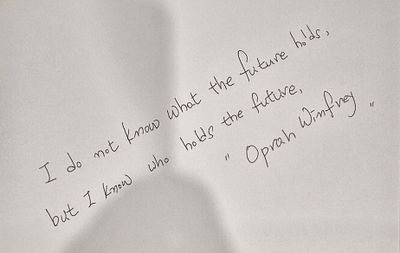 I do not know what the future holds,
but I know who holds the future,
" Oprah Winfrey "